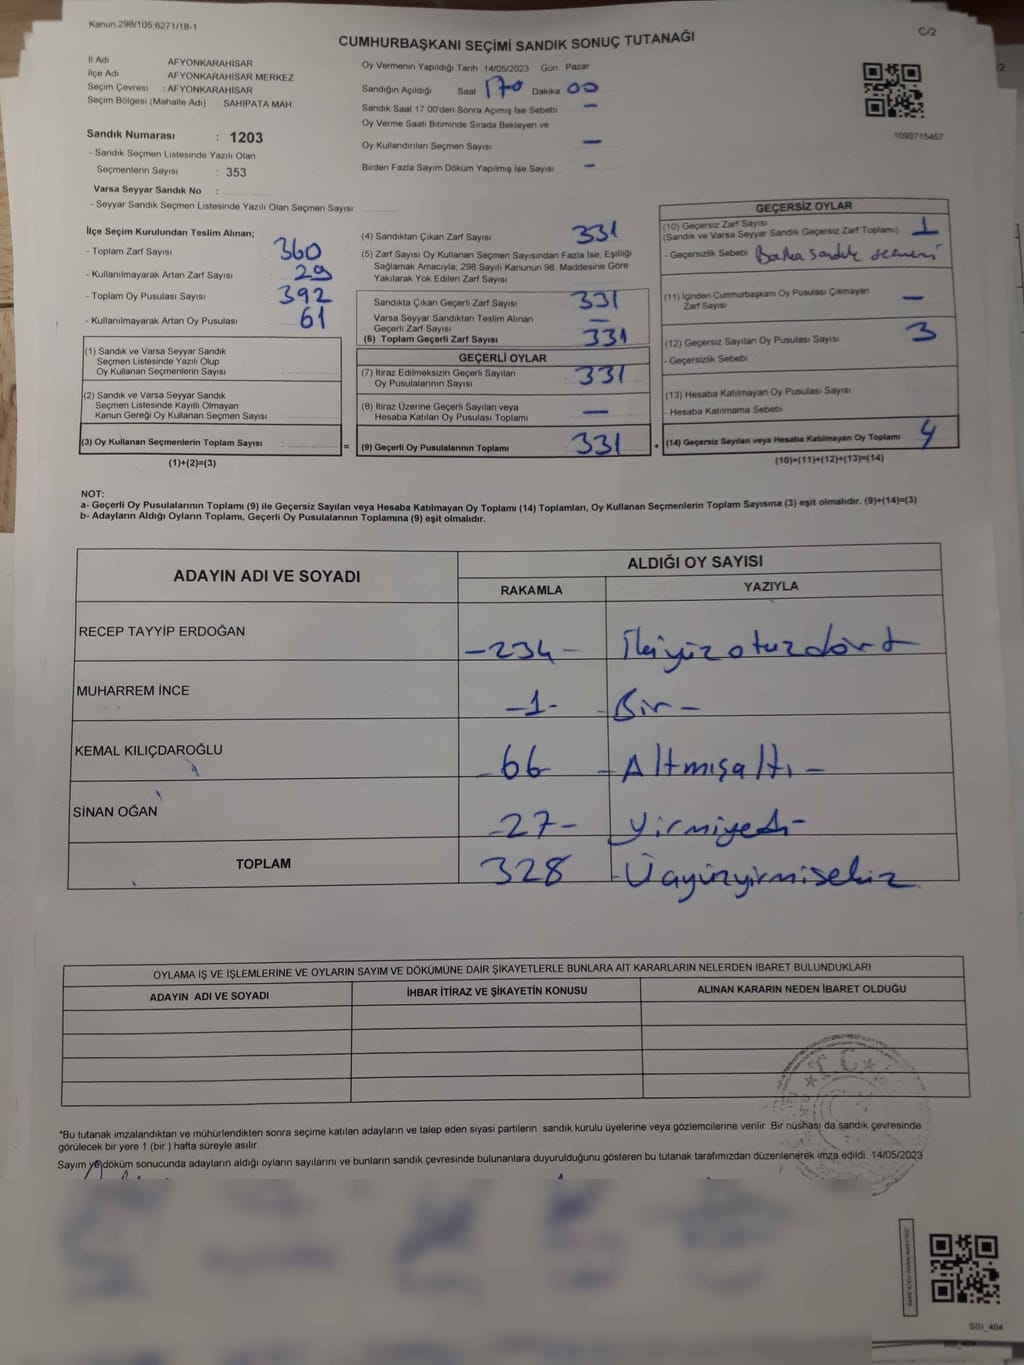 Kanun 298/105,6271/18-1
C/2
CUMHURBAŞKANI SEÇİMİ SANDIK SONUÇ TUTANAĞI
İl Adı AFYONKARAHİSAR
İlçe Adı AFYONKARAHİSAR MERKEZ
Seçim Çevresi : AFYONKARAHİSAR
Seçim Bölgesi (Mahalle Adı) SAHİPATA MAH
Sandık Numarası : 1203
- Sandık Seçmen Listesinde Yazılı Olan
Seçmenlerin Sayısı : 353
Varsa Seyyar Sandık No :
- Seyyar Sandık Seçmen Listesinde Yazılı Olan Seçmen Sayısı:
Oy Vermenin Yapıldığı Tarih 14/05/2023 Gün Pazar
Sandığın Açıldığı Saat 17 Dakika 00
Sandık Saat 17.00'den Sonra Açımış İse Sebebi —
Oy Verme Saati Bitiminde Sırada Bekleyen ve
Oy Kullandırılan Seçmen Sayısı —
Birden Fazla Sayım Döküm Yapılmış İse Sayısı -
1093715457
İlçe Seçim Kurulundan Teslim Alınan;
- Toplam Zarf Sayısı 360
- Kullanılmayarak Artan Zarf Sayısı 29
- Toplam Oy Pusulası Sayısı 392
- Kullanılmayarak Artan Oy Pusulası 61
(1) Sandık ve Varsa Seyyar Sandık
Seçmen Listesinde Yazılı Olup
Oy Kullanan Seçmenlerin Sayısı :
(2) Sandık ve Varsa Seyyar Sandık
Seçmen Listesinde Kayıtlı Olmayan
Kanun Gereği Oy Kullanan Seçmen Sayısı
(3) Oy Kullanan Seçmenlerin Toplam Sayısı : =
(1)+(2)=(3)
(4) Sandıktan Çıkan Zarf Sayısı 331
(5) Zarf Sayısı Oy Kullanan Seçmen Sayısından Fazla İse, Eşitliği
Sağlamak Amacıyla, 298 Sayılı Kanunun 98. Maddesine Göre
Yakılarak Yok Edilen Zarf Sayısı
Sandıkta Çıkan Geçerli Zarf Sayısı 331
Varsa Seyyar Sandıktan Teslim Alınan
Geçerli Zarf Sayısı —
(6) Toplam Geçerli Zarf Sayısı 331
GEÇERLİ OYLAR
(7) İtiraz Edilmeksizin Geçerli Sayılan
Oy Pusulalarının Sayısı 331
(8) İtiraz Üzerine Geçerli Sayılan veya
Hesaba Katılan Oy Pusulası Toplamı —
(9) Geçerli Oy Pusulalarının Toplamı 331 +
GEÇERSİZ OYLAR
(10) Geçersiz Zarf Sayısı
(Sandık ve Varsa Seyyar Sandık Geçersiz Zarf Toplamı) 1
- Geçersizlik Sebebi Başka sandık seçmeni
(11) İçinden Cumhurbaşkanı Oy Pusulası Çıkmayan
Zarf Sayısı —
(12) Geçersiz Sayılan Oy Pusulası Sayısı 3
- Geçersizlik Sebebi
(13) Hesaba Katılmayan Oy Pusulası Sayısı
- Hesaba Katılmama Sebebi
(14) Geçersiz Sayılan veya Hesaba Katılmayan Oy Toplamı 4
(10)+(11)+(12)+(13)=(14)
NOT:
a- Geçerli Oy Pusulalarının Toplamı (9) ile Geçersiz Sayılan veya Hesaba Katılmayan Oy Toplamı (14) Toplamları, Oy Kullanan Seçmenlerin Toplam Sayısına (3) eşit olmalıdır. (9)+(14)=(3)
b- Adayların Aldığı Oyların Toplamı, Geçerli Oy Pusulalarının Toplamına (9) eşit olmalıdır.
ADAYIN ADI VE SOYADI
ALDIĞI OY SAYISI
RAKAMLA YAZIYLA
RECEP TAYYİP ERDOĞAN -234- İkiyüzotuzdört
MUHARREM İNCE -1- -Bir-
KEMAL KILIÇDAROĞLU -66 -Altmışaltı-
SİNAN OĞAN -27- yirmiyedi-
TOPLAM 328 -Üçyüzyirmisekiz
OYLAMA İŞ VE İŞLEMLERİNE VE OYLARIN SAYIM VE DÖKÜMÜNE DAİR ŞİKAYETLERLE BUNLARA AİT KARARLARIN NELERDEN İBARET BULUNDUKLARI
ADAYIN ADI VE SOYADI İHBAR İTİRAZ VE ŞİKAYETİN KONUSU ALINAN KARARIN NEDEN İBARET OLDUĞU
T.C.
*Bu tutanak imzalandıktan ve mühürlendikten sonra seçime katılan adayların ve talep eden siyasi partilerin sandık kurulu üyelerine veya gözlemcilerine verilir. Bir nüshası da sandık çevresinde
görülecek bir yere 1 (bir ) hafta süreyle asılır.
Sayım ve döküm sonucunda adayların aldığı oyların sayılarını ve bunların sandık çevresinde bulunanlara duyurulduğunu gösteren bu tutanak tarafımızdan düzenlenerek imza edildi. 14/05/2023
SSI_404